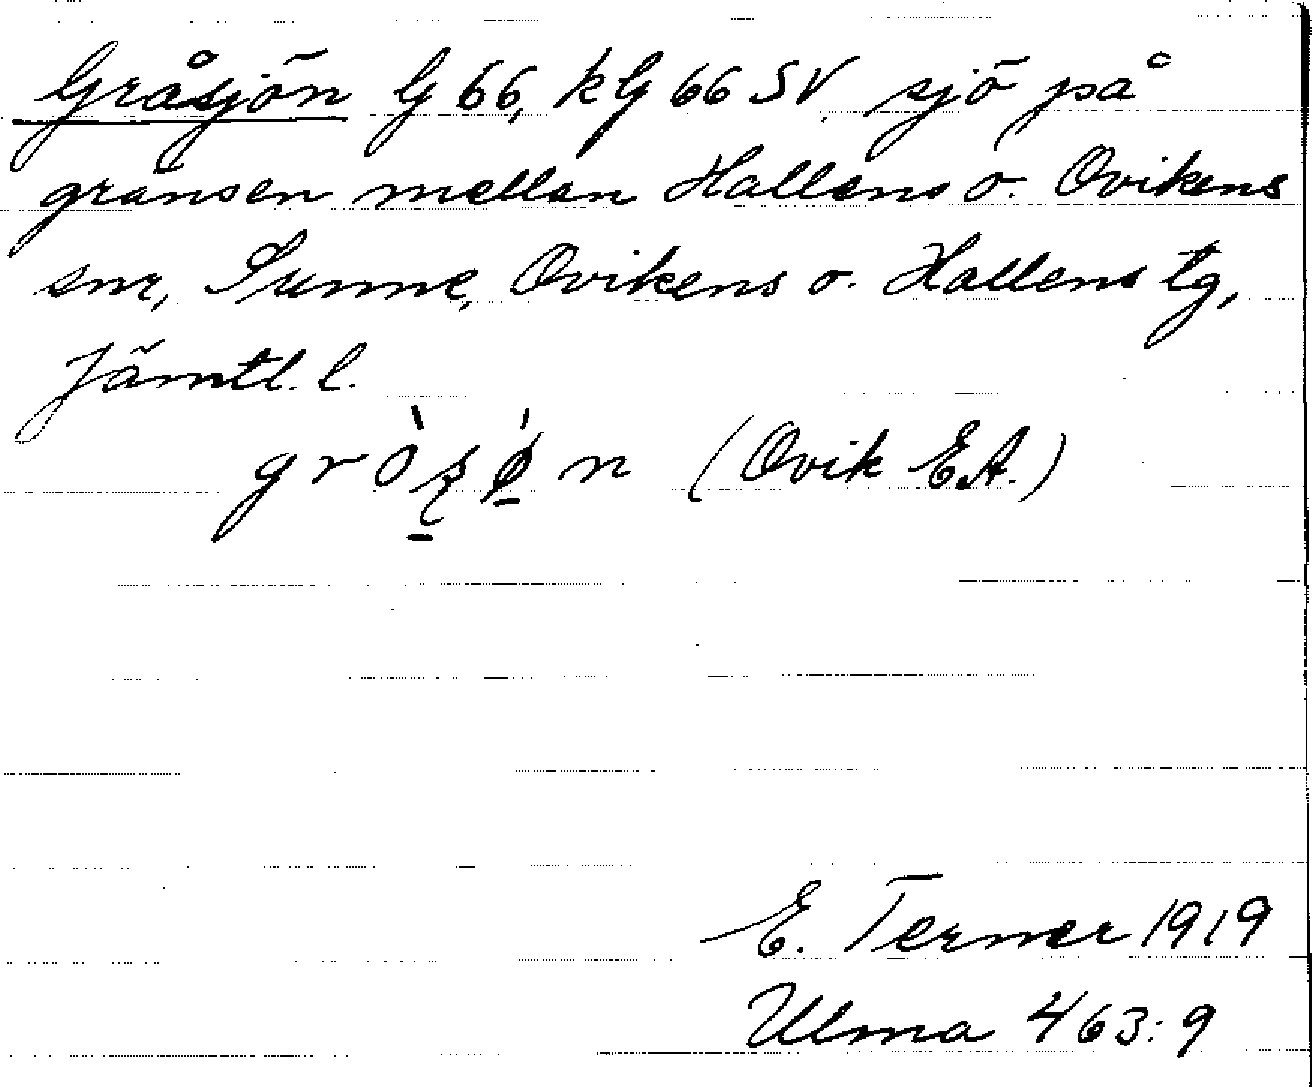 Gråsjön G 66, kG 66 SV sjö på
gränsen mellan Hallens o. Ovikens
snr, Sunne, Ovikens o. Hallens tg,
Jämtl. l.
(Ovik E.A.)
E. Terner 1919
Ulma 463:9